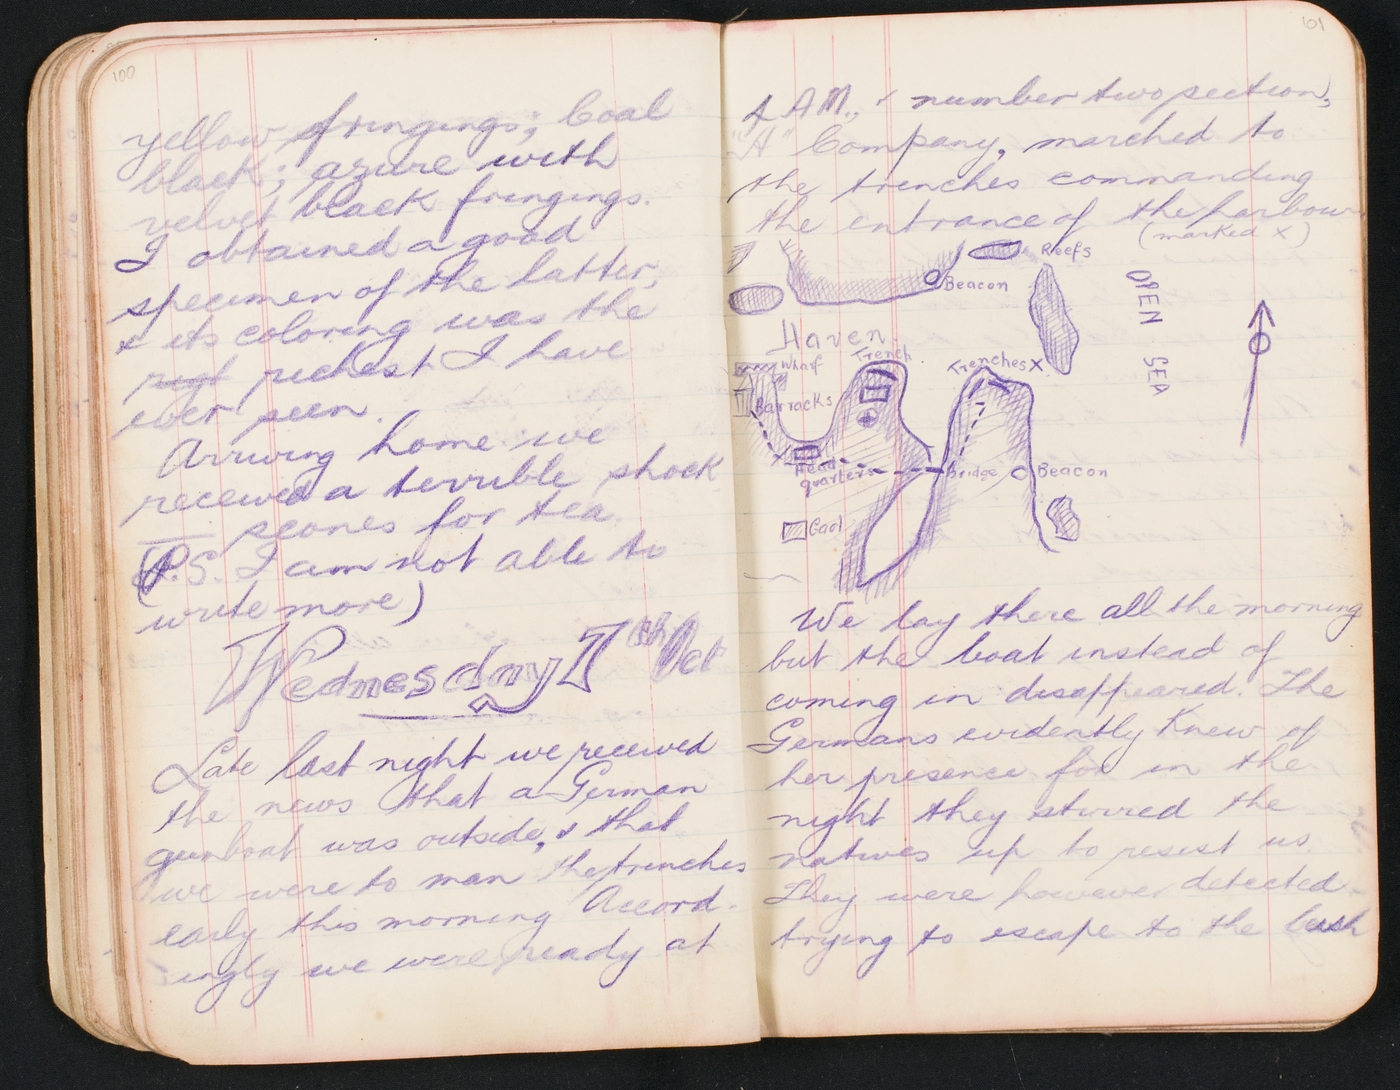 100
yellow fringings; Coal
black; azure with
velvet black fringings.
I obtained a good
specimen of the latter,
& its coloring was the
richest I have
ever seen.
Arriving home we
received a terrible shock
— scones for tea.
(P.S. I am not able to
write more)
Wednesday 7th Oct
Late last night we received
the news that a German
gunboat was outside, & that
we were to man the trenches
early this morning Accord-
ingly we were ready at
101
4 AM., & number two section,
"A" Company, marched to
the trenches commanding
the entrance of the harbour
(marked X)
Reefs
Beacon
OPEN SEA
Haven
Wharf
Trench
Trenches X
Barracks
Head quarters
Bridge
Beacon
Gaol
We lay there all the morning
but the boat instead of
coming in disappeared. The
Germans evidently knew of
her presence for in the
night they stirred the
natives up to resist us.
They were however detected
trying to escape to the bush